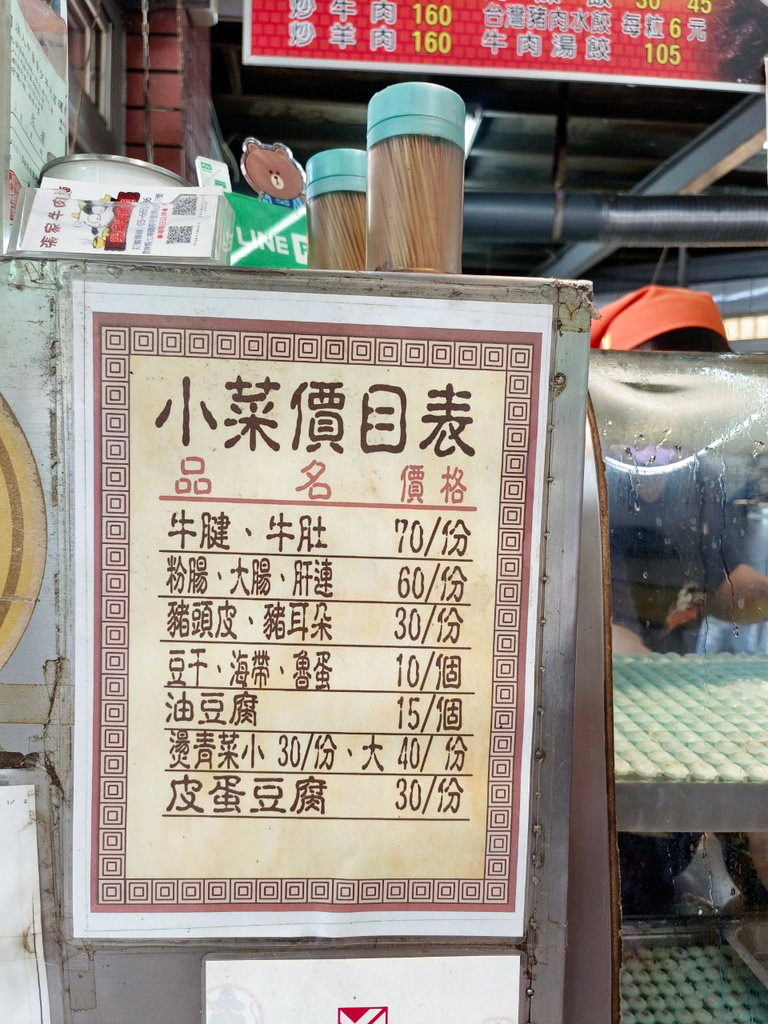 炒牛肉 160
炒羊肉 160
30 45
台灣豬肉水餃 每粒6元
牛肉湯餃 105
張家牛肉
LINE P
小菜價目表
品名 價格
牛腱、牛肚 70/份
粉腸、大腸、肝連 60/份
豬頭皮、豬耳朵 30/份
豆干、海帶、魯蛋 10/個
油豆腐 15/個
燙青菜小 30/份、大 40/ 份
皮蛋豆腐 30/份